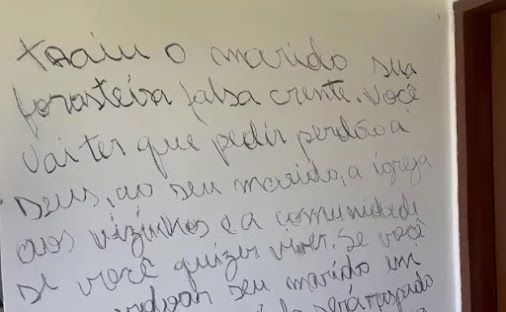 traiu o marido sua
forasteira falsa crente. Você
vai ter que pedir perdão a
Deus, ao seu marido, a igreja
aos vizinhos e a comunidade
se você quizer viver. Se você
seu marido
será raspado